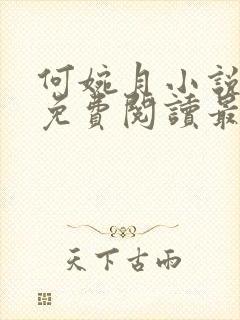 何婉月小說
免費閱讀最
天下古雨